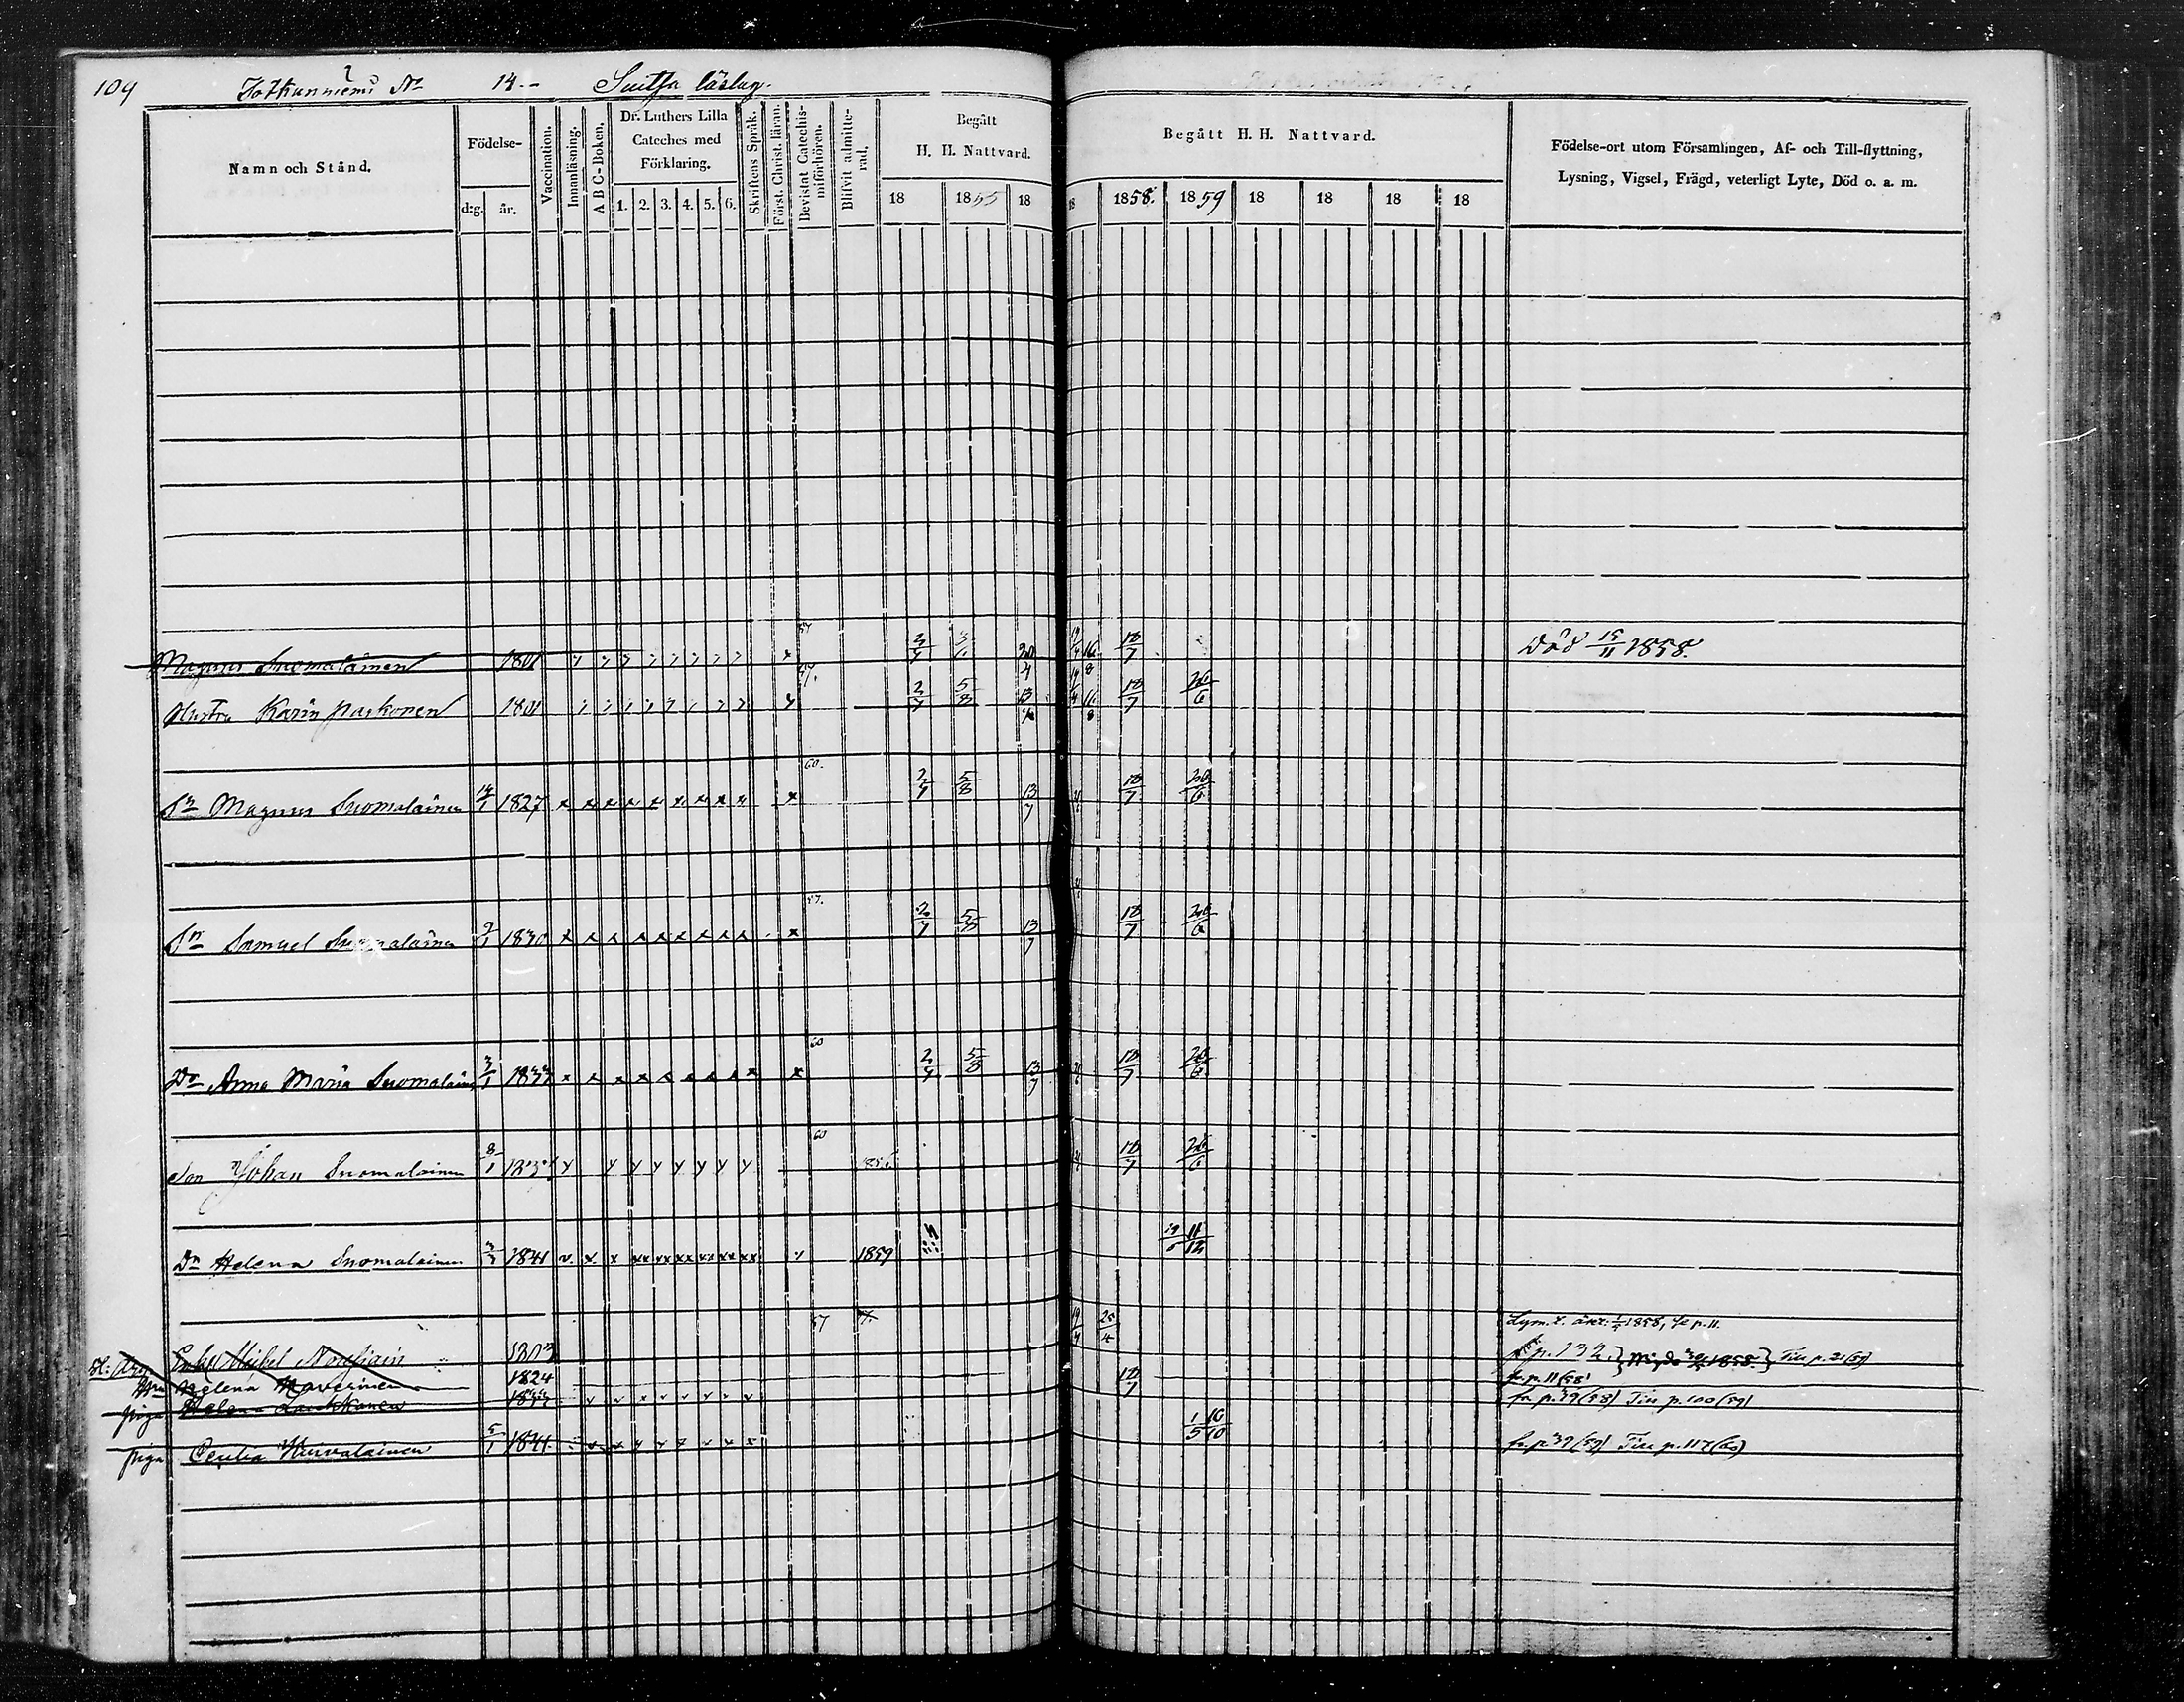 109 Totkunniemi No 14.- Suitsa läslag.
Namn och Stånd. Födelse- d:g. år. Vaccination. Innanläsning. A B C-Boken. Dr. Luthers Lilla Cateches med Förklaring. 1. 2. 3. 4. 5. 6. Skriftens Språk. Först. Christ. läran. Bevistat Catechismiförhören. Blifvit admitterad. Begått H. H. Nattvard. 18 1855 18
Begått H. H. Nattvard. 18 1858. 1859 18 18 18 18
Födelse-ort utom Församlingen, Af- och Till-flyttning, Lysning, Vigsel, Frägd, veterligt Lyte, Död o. a. m.
Magnus Suomalainen 1801 57 2/7 18/7 Död 15/11 1858.
Hustru Karin Paskonen 1801 57. 2/7 5/8 13/7 18/7 26/6
Sn Magnus Suomalainen 14/1 1827 x x x x x x x x x x 60. 2/7 5/8 13/7 18/7 26/6
Sn Samuel Suomalainen 9/1 1830 x x x x x x x x x x 57. 2/7 5/8 13/7 18/7 26/6
Dr Anna Maria Suomalain 3/1 1833 x x x x x x x x x x 60 2/7 5/8 13/7 18/7 26/6
Son Johan Suomalainen 8/1 y y y y y y y y 60 18/7 26/6
Dr Helena Suomalainen 1841 x x xx xx xx xx xx xx 1859 11/12
57 19/4 25/4 Lysn. t. äkt. 1858, se p. 11.
Enkl. Mikel Nousiain 1803 p. 132 Till p. 2
Hu Helena Haverinen 1824 fr. p. 11 (58)
piga Helena Laukkanen 1833 18/7 fr. p. 39 (58) Till p. 100 (59)
piga Cecilia Huivalainen 5/1 1841 1/5 16/10 fr. p. 39 (59) Till p. 117 (60)